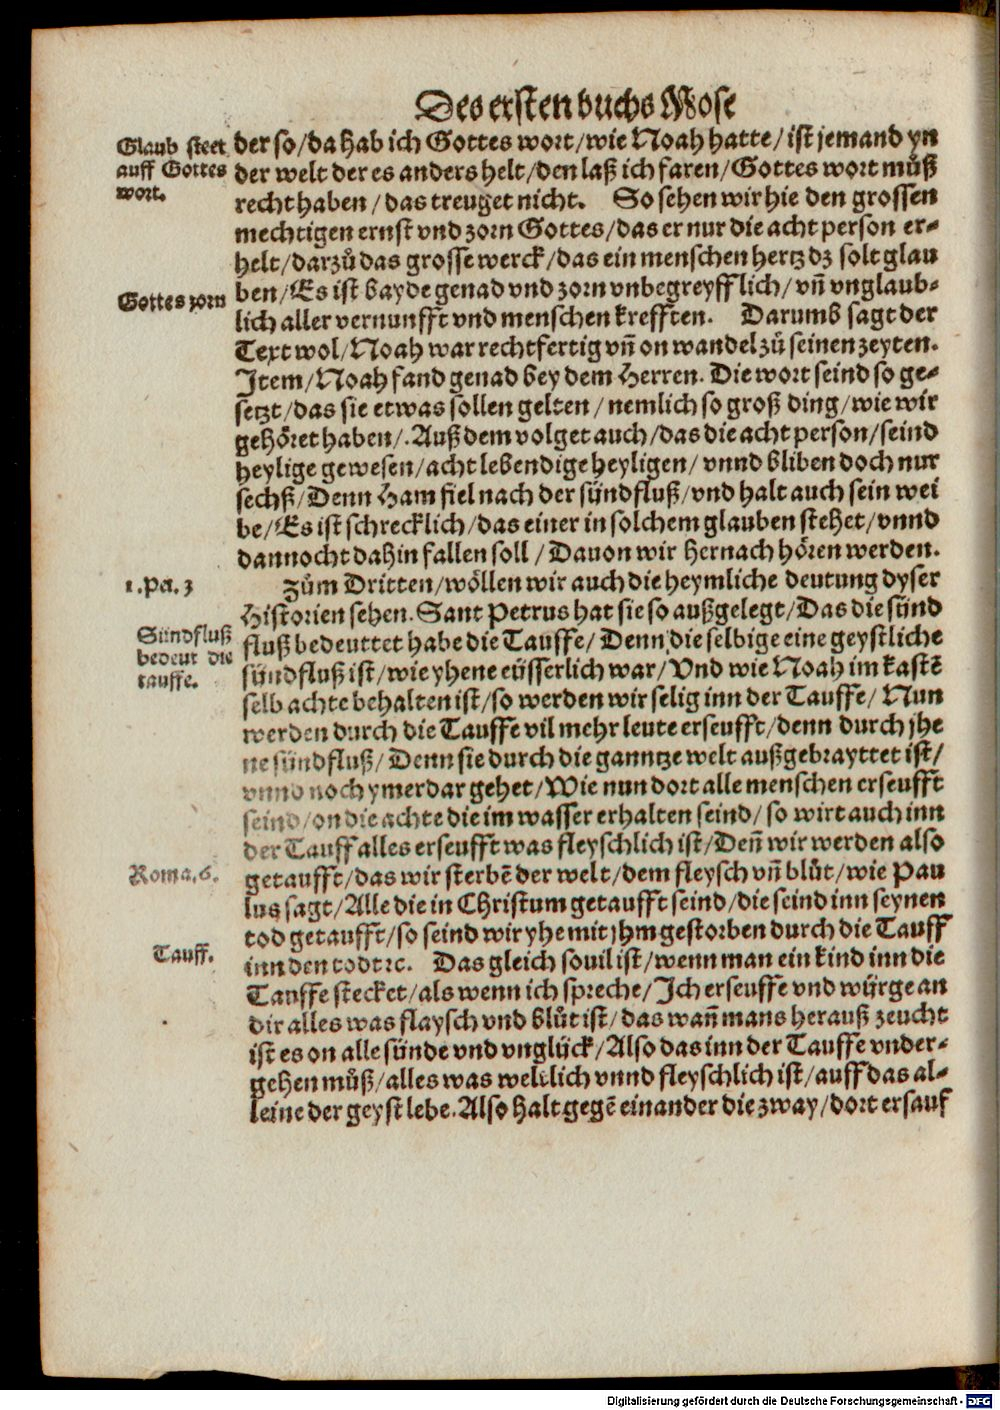 Des ersten buchs Mose
Glaub steet
auff Gottes
wort.
der so/da hab ich Gottes wort/wie Noah hatte/ist jemand yn
der welt der es anders helt/den laß ich faren/Gottes wort můß
recht haben/das treuget nicht. So sehen wir hie den grossen
mechtigen ernst vnd zorn Gottes/das er nur die acht person er-
helt/darzů das grosse werck/das ein menschen hertz dz solt glau
Gottes zorn
ben/Es ist bayde genad vnd zorn vnbegreyfflich/vñ vnglaub-
lich aller vernunfft vnd menschen krefften. Darumb sagt der
Text wol/Noah war rechtfertig vñ on wandel zů seinen zeyten.
Item/Noah fand genad bey dem Herren. Die wort seind so ge-
setzt/das sie etwas sollen gelten/nemlich so groß ding/wie wir
gehöret haben/.Auß dem volget auch/das die acht person/seind
heylige gewesen/acht lebendige heyligen/vnnd bliben doch nur
sechß/Denn Ham fiel nach der sündfluß/vnd halt auch sein wei
be/Es ist schrecklich/das einer in solchem glauben stehet/vnnd
dannocht dahin fallen soll/Dauon wir hernach hören werden.
1.Pet.3
Zům Dritten/wöllen wir auch die heymliche deutung dyser
Historien sehen. Sant Petrus hat sie so außgelegt/Das die sünd
Sündfluß
bedeut die
tauffe.
fluß bedeuttet habe die Tauffe/Denn die selbige eine geystliche
sündfluß ist/wie yhene eüsserlich war/Vnd wie Noah im kastē
selb achte behalten ist/so werden wir selig inn der Tauffe/Nun
werden durch die Tauffe vil mehr leute erseufft/denn durch jhe
ne sündfluß/Denn sie durch die ganntze welt außgebrayttet ist/
vnnd noch ymerdar gehet/Wie nun dort alle menschen erseufft
seind/on die achte die im wasser erhalten seind/so wirt auch inn
der Tauff alles erseufft was fleyschlich ist/Deñ wir werden also
Roma.6.
getaufft/das wir sterbē der welt/dem fleysch vñ blůt/wie Pau
lus sagt/Alle die in Christum getaufft seind/die seind inn seynen
tod getaufft/so seind wir yhe mit jhm gestorben durch die Tauff
Tauff.
inn den todt ꝛc. Das gleich souil ist/wenn man ein kind inn die
Tauffe stecket/als wenn ich spreche/Ich erseuffe vnd würge an
dir alles was flaysch vnd blůt ist/das wañ mans herauß zeucht
ist es on alle sünde vnd vnglück/Also das inn der Tauffe vnder-
gehen můß/alles was weltlich vnnd fleyschlich ist/auff das al-
leine der geyst lebe.Also halt gegē einander die zway/dort ersauf
Digitalisierung gefördert durch die Deutsche Forschungsgemeinschaft - DFG